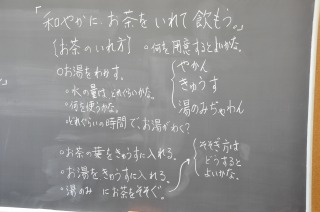 「和やかに、お茶をいれて飲もう。」
〔お茶のいれ方〕 ○何を用意するとよいかな。
やかん
きゅうす
湯のみぢゃわん
○お湯をわかす。
・水の量は どれくらいかな。
・何を使うかな。
・どれぐらいの時間で、お湯がわく?
○お茶の葉をきゅうすに入れる。
○お湯をきゅうすに入れる。
○湯のみ にお茶をそそぐ。
そそぎ方は
どうすると
よいかな。